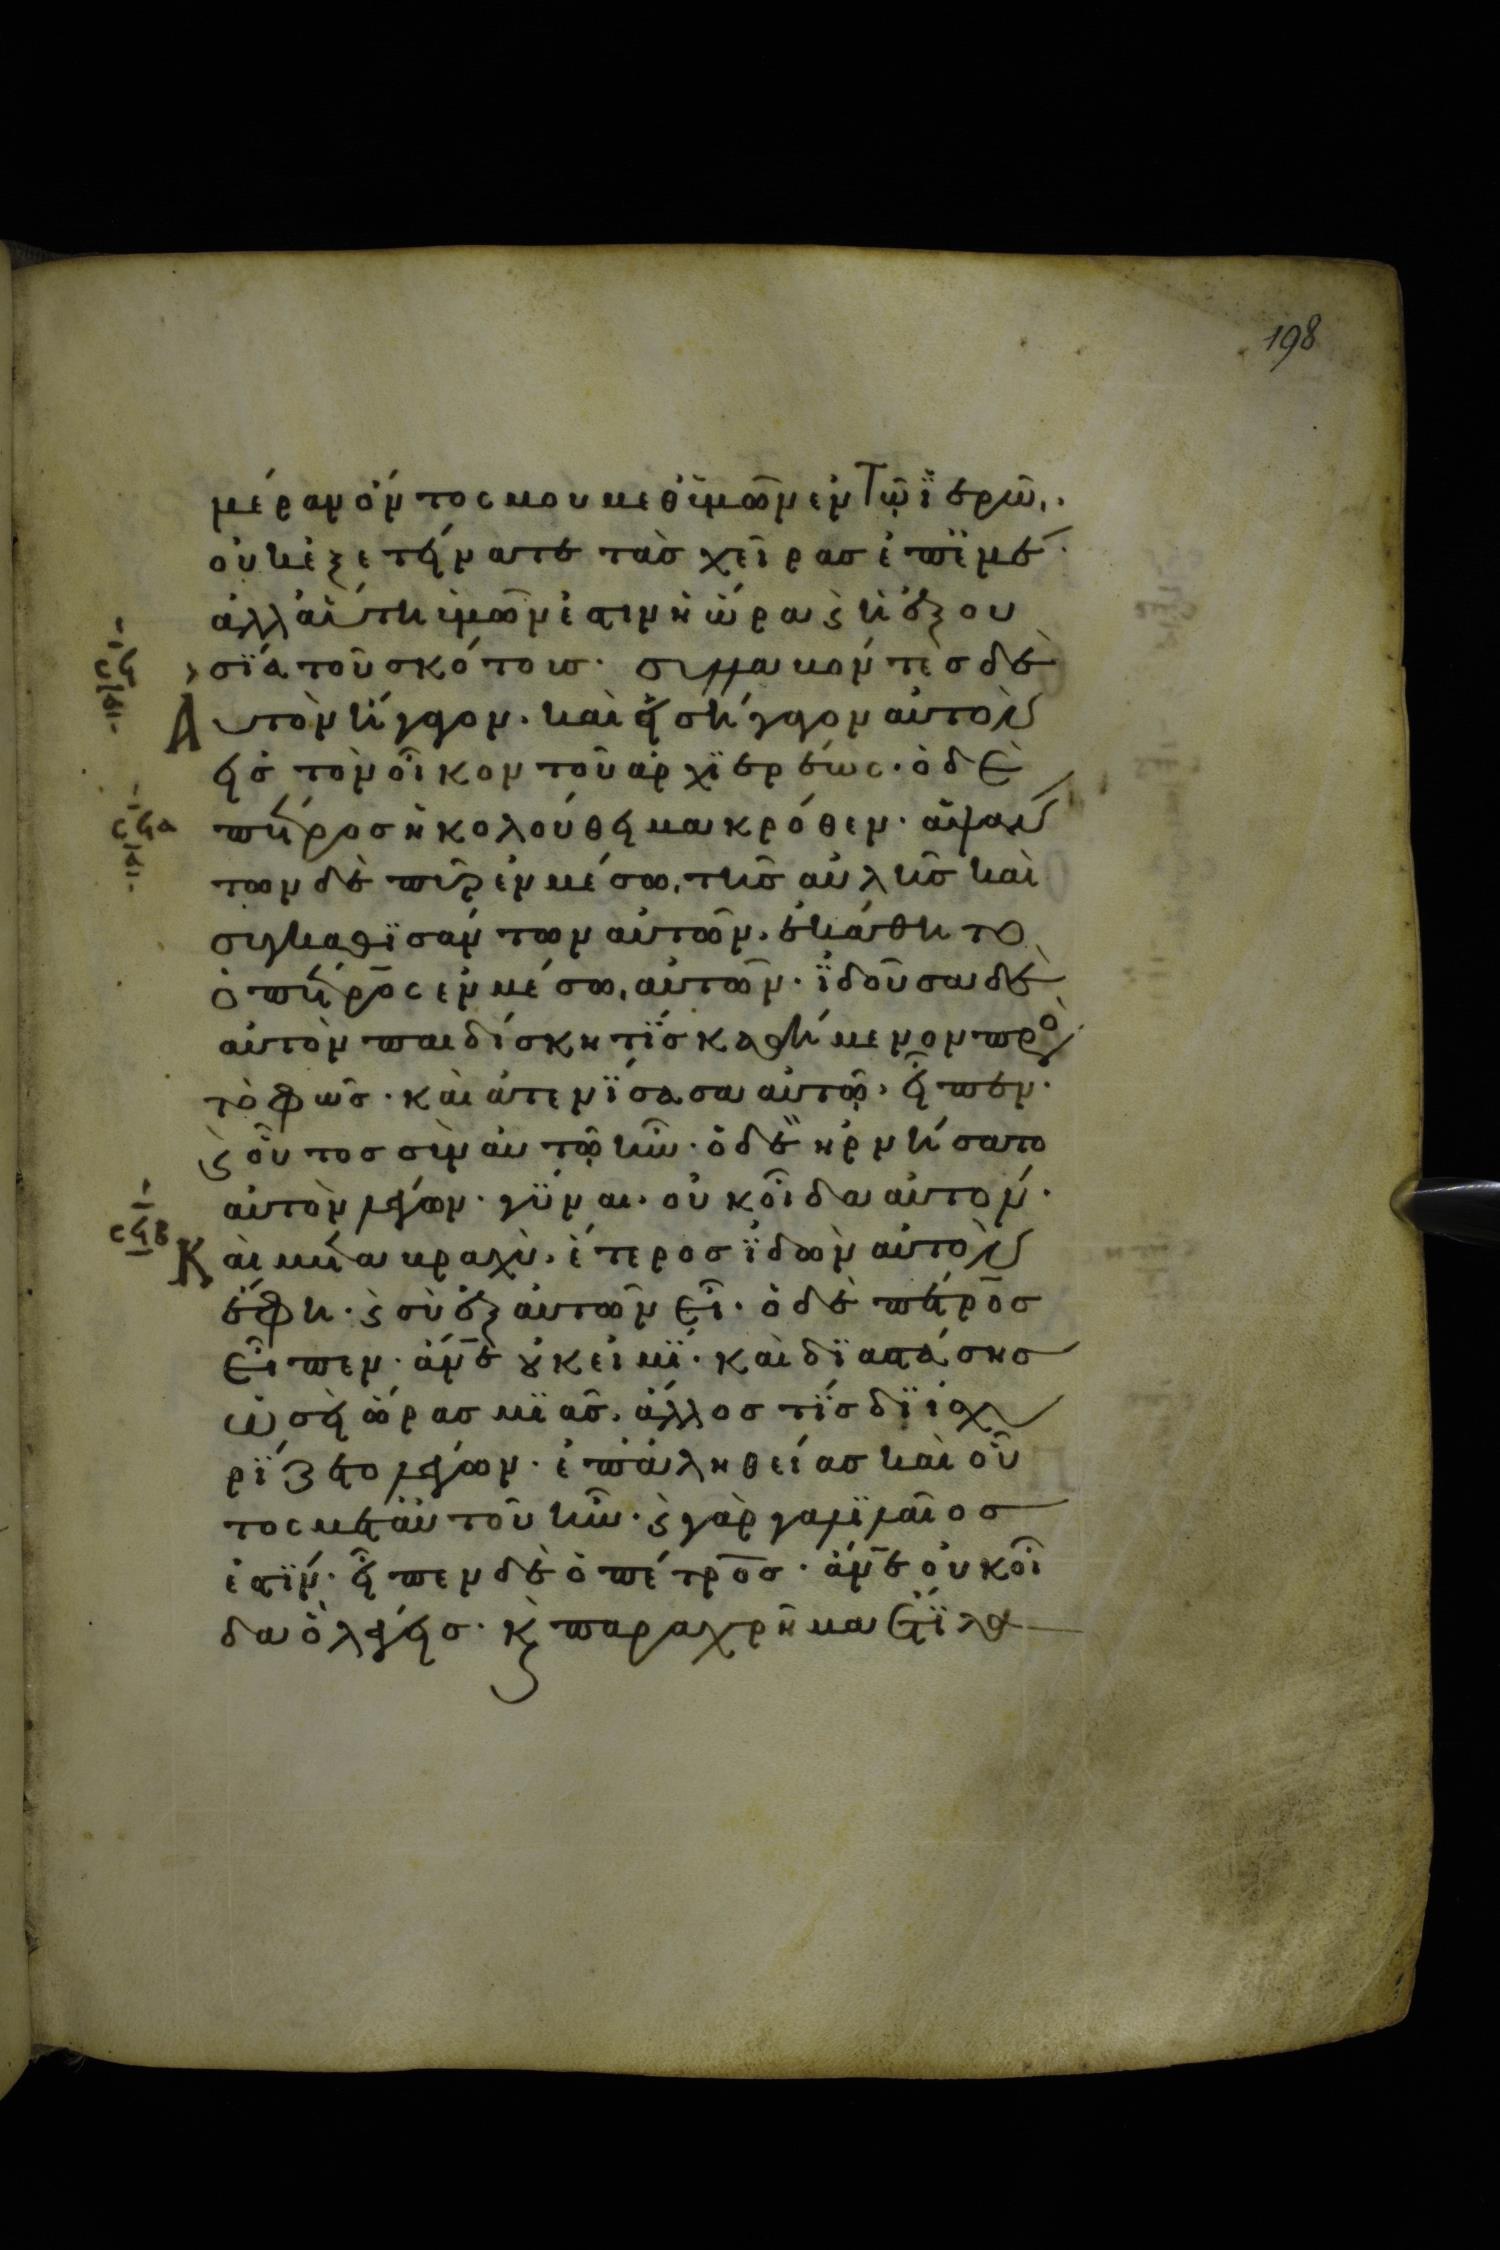 198
μέραν ὄντος μου μεθ ϋμῶν ἐν τῷ ϊερῶ.
οὐκ ἐξετείνατε τὰσ χεῖρασ ἐπ ἐμέ·
ἀλλ αὕτη ὑμῶν ἐστιν ἡ ὥρα ϗ ἡ ἐξου
σϊα τοῦ σκότουσ· συλλαβόντεσ δὲ
Αὐτὸν ἤγαγον· καὶ εἰσήγαγον αὐτὸν
εἰσ τὸν οἶκον τοῦ ἀρχϊερέως· ὁ δὲ
πέτροσ ἠκολούθει μακρόθεν· ἁψάν
των δὲ πῦρ ἐν μέσω τῆσ αὐλῆσ καὶ
συγκαθϊσάντων αὐτῶν· ἐκάθητο
ὁ πέτρος ἐν μέσω αὐτῶν· ϊδοῦσα δὲ
αὐτὸν παιδίσκη τϊσ καθήμενον πρὸς
τὸ φῶσ· καὶ ἀτενϊσασα αὐτῷ· εἶπεν·
ϗ οὗτοσ σὺν αὐτῷ ἦν· ὁ δὲ ἠρνήσατο
αὐτὸν λέγων· γύναι· οὐκ οἶδα αὐτόν·
Καὶ μετὰ βραχὺ· ἕτεροσ ϊδὼν αὐτὸν
ἔφη· ϗ σὺ ἐξ αὐτῶν εἶ· ὁ δὲ πέτροσ
εἶπεν· ἄνε οὐκ εἰμϊ· καὶ δϊαστάσησ
ὡσεὶ ὥρασ μϊᾶσ· ἄλλοσ τϊσ δϊισχυ
ρϊζετο λέγων· ἐπ ἀληθείασ καὶ οὗ
τος μετ αὐτοῦ ἦν· ϗ γὰρ γαλϊλαῖοσ
ἐστϊν· εἶπεν δὲ ὁ πέτροσ· ἄνε οὐκ οἶ
δα ὃ λέγεισ· ϗ παραχρῆμα ἔτϊ λα